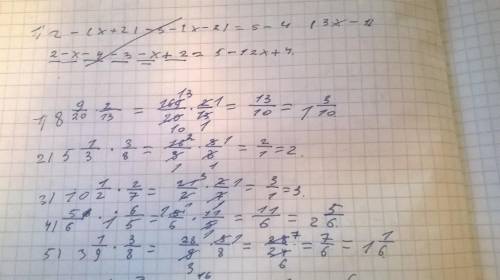 1) 2 - (x+2) - 3 - (x-2) = 5 - 4 (3x - 1
2-x-4-3-x+2 = 5-12x+4.
1) 8 9/20 · 2/13 = 169/20 · 2/13 = 13/10 = 1 3/10
2) 5 1/3 · 3/8 = 16/3 · 3/8 = 2/1 = 2.
3) 10 1/2 · 2/7 = 21/2 · 2/7 = 3/1 = 3.
4) 5/6 · 1 6/5 = 5/6 · 11/5 = 11/6 = 2 5/6.
5) 3 1/9 · 3/8 = 28/9 · 3/8 = 28/24 = 7/6 = 1 1/6.